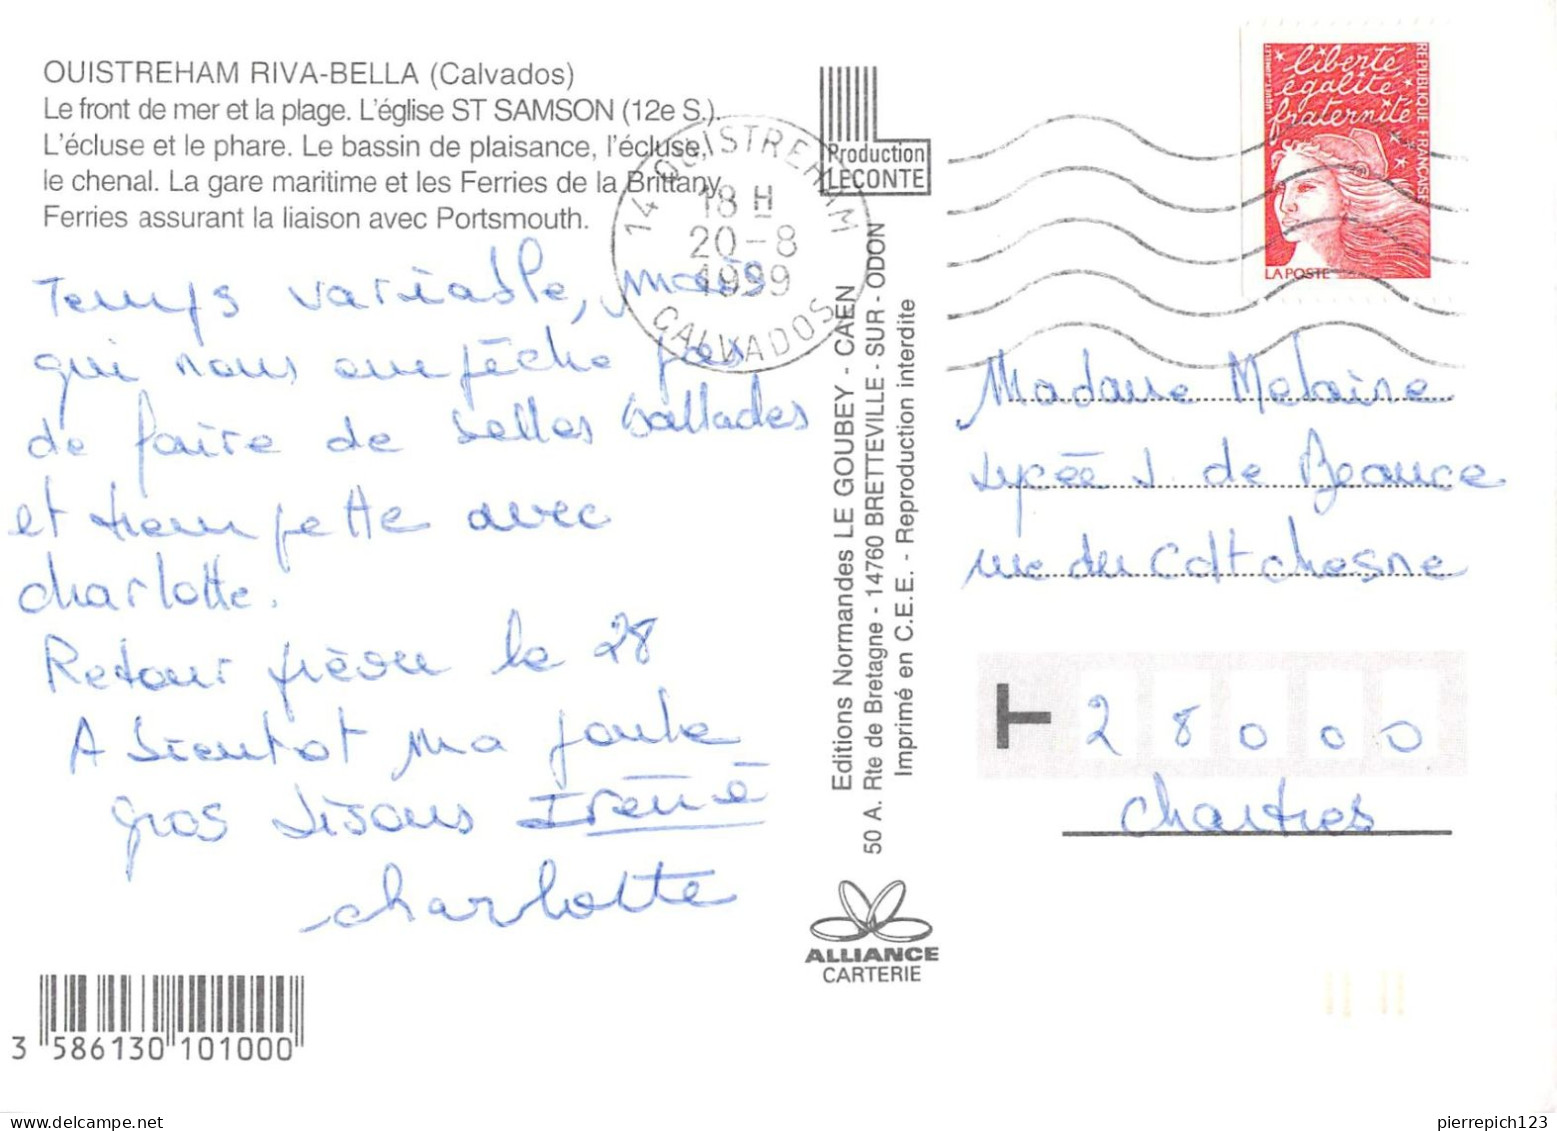 OUISTREHAM RIVA-BELLA (Calvados)
Le front de mer et la plage. L'église ST SAMSON (12e S.).
L'écluse et le phare. Le bassin de plaisance, l'écluse,
le chenal. La gare maritime et les Ferries de la Brittany
Ferries assurant la liaison avec Portsmouth.
Temps variable, mais
qui nous empêche pas
de faire de belles ballades
et trempette avec
charlotte.
Retour prévu le 28
A bientôt ma
gros bisous Irène
charlotte
3 586130 101000
14 OUISTREHAM
18 H
20-8
1999
CALVADOS
Production
LECONTE
Editions Normandes LE GOUBEY - CAEN
50 A. Rte de Bretagne - 14760 BRETTEVILLE - SUR - ODON
Imprimé en C.E.E. - Reproduction interdite
ALLIANCE
CARTERIE
liberté
égalité
fraternité
REPUBLIQUE FRANÇAISE
LA POSTE
Madame
Lycée J. de Beauce
rue du Cdt chesne
28000
Chartres
pierrepich123